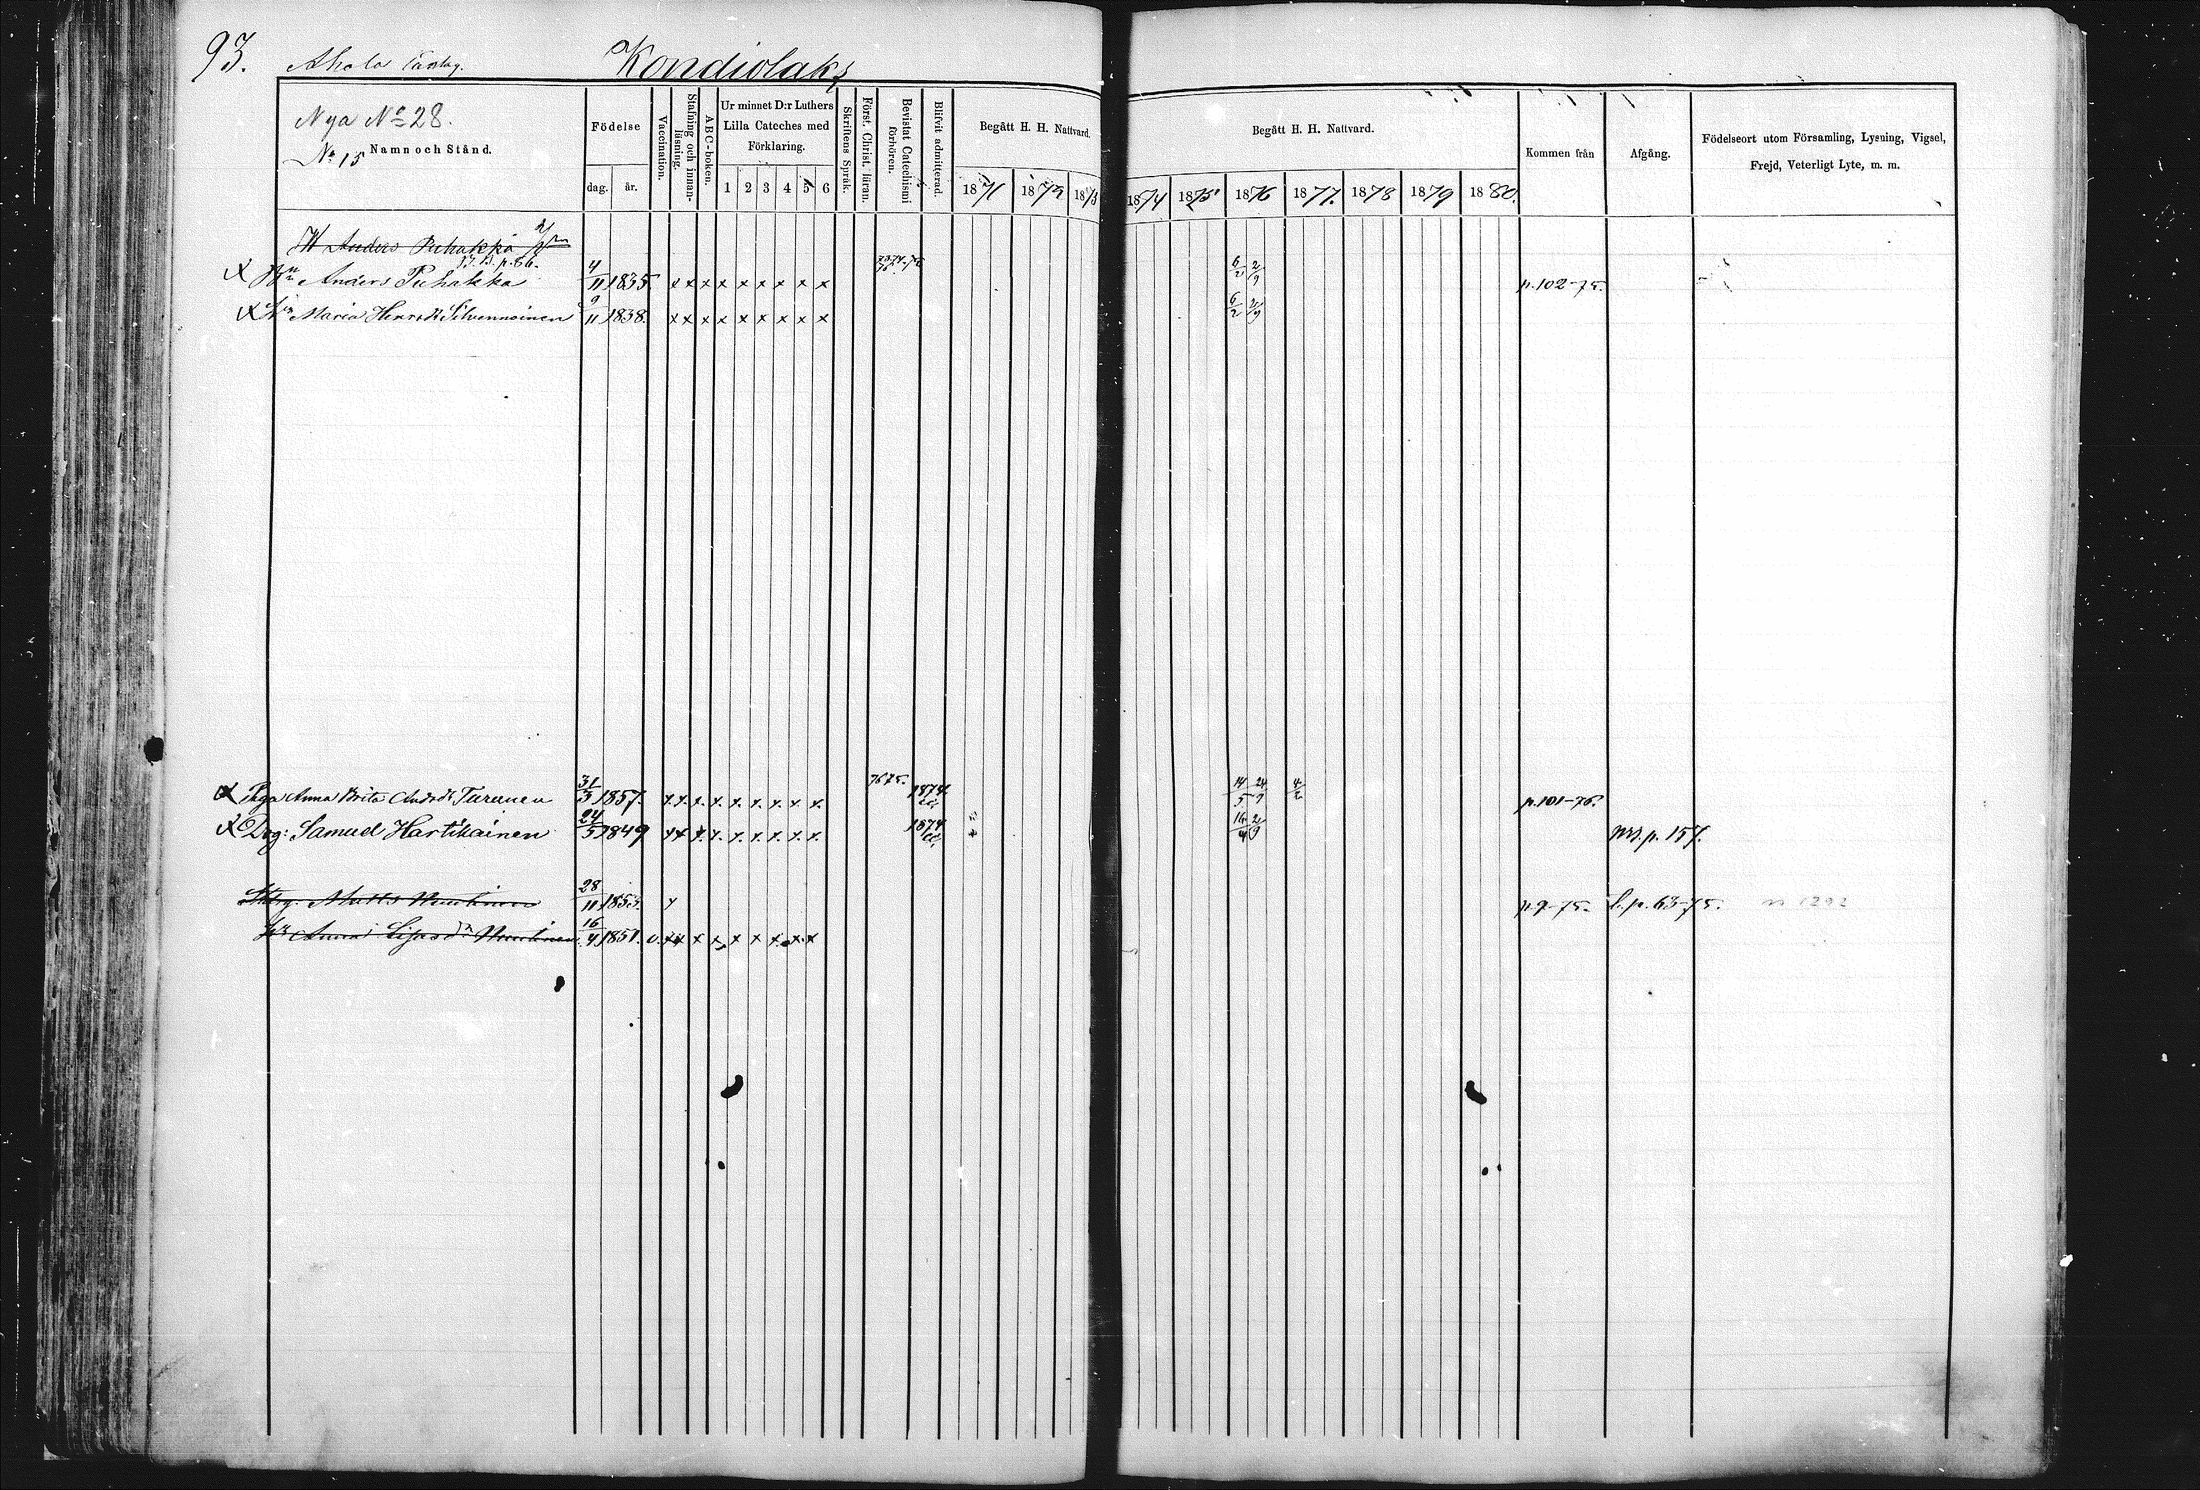 93. Ahola Kondiolaks
Nya No 28.
No 15 Namn och Stånd.
Födelse
dag. år.
Vaccination.
Stafning och innanläsning.
ABC-boken.
Ur minnet D:r Luthers Lilla Cateches med Förklaring.
1 2 3 4 5 6
Skriftens Språk.
Först. Christ. läran.
Bevistat Catechismi förhören.
Blifvit admitterad.
Begått H. H. Nattvard.
1871 1872 1873
Begått H. H. Nattvard.
1874 1875 1876 1877. 1878 1879 1880.
Kommen från
Afgång.
Födelseort utom Församling, Lysning, Vigsel,
Frejd, Veterligt Lyte, m. m.
Anders Puhakka
B. p. 86.
X Anders Puhakka 4/11 1835. x x x x x x x x x 6/2 2/9 p. 102-75.
X Maria Henr. dr Silvennoinen 9/11 1838. x x x x x x x x x 6/2 2/9
X Piga Anna Brita And. dr Turunen 31/3 1857. x x x x x x x x x 76 75. 1874. 14/5 24/9 4/2 p. 101-76.
X Drg: Samuel Hartikainen 24/5 1849 x x x x x x x x x 1874 16/4 2/9 p. 157.
Matts 28/11 1853. x p. 9-75. p. 63-75.
Anna 16/4 1851. v. x x x x x x x x x